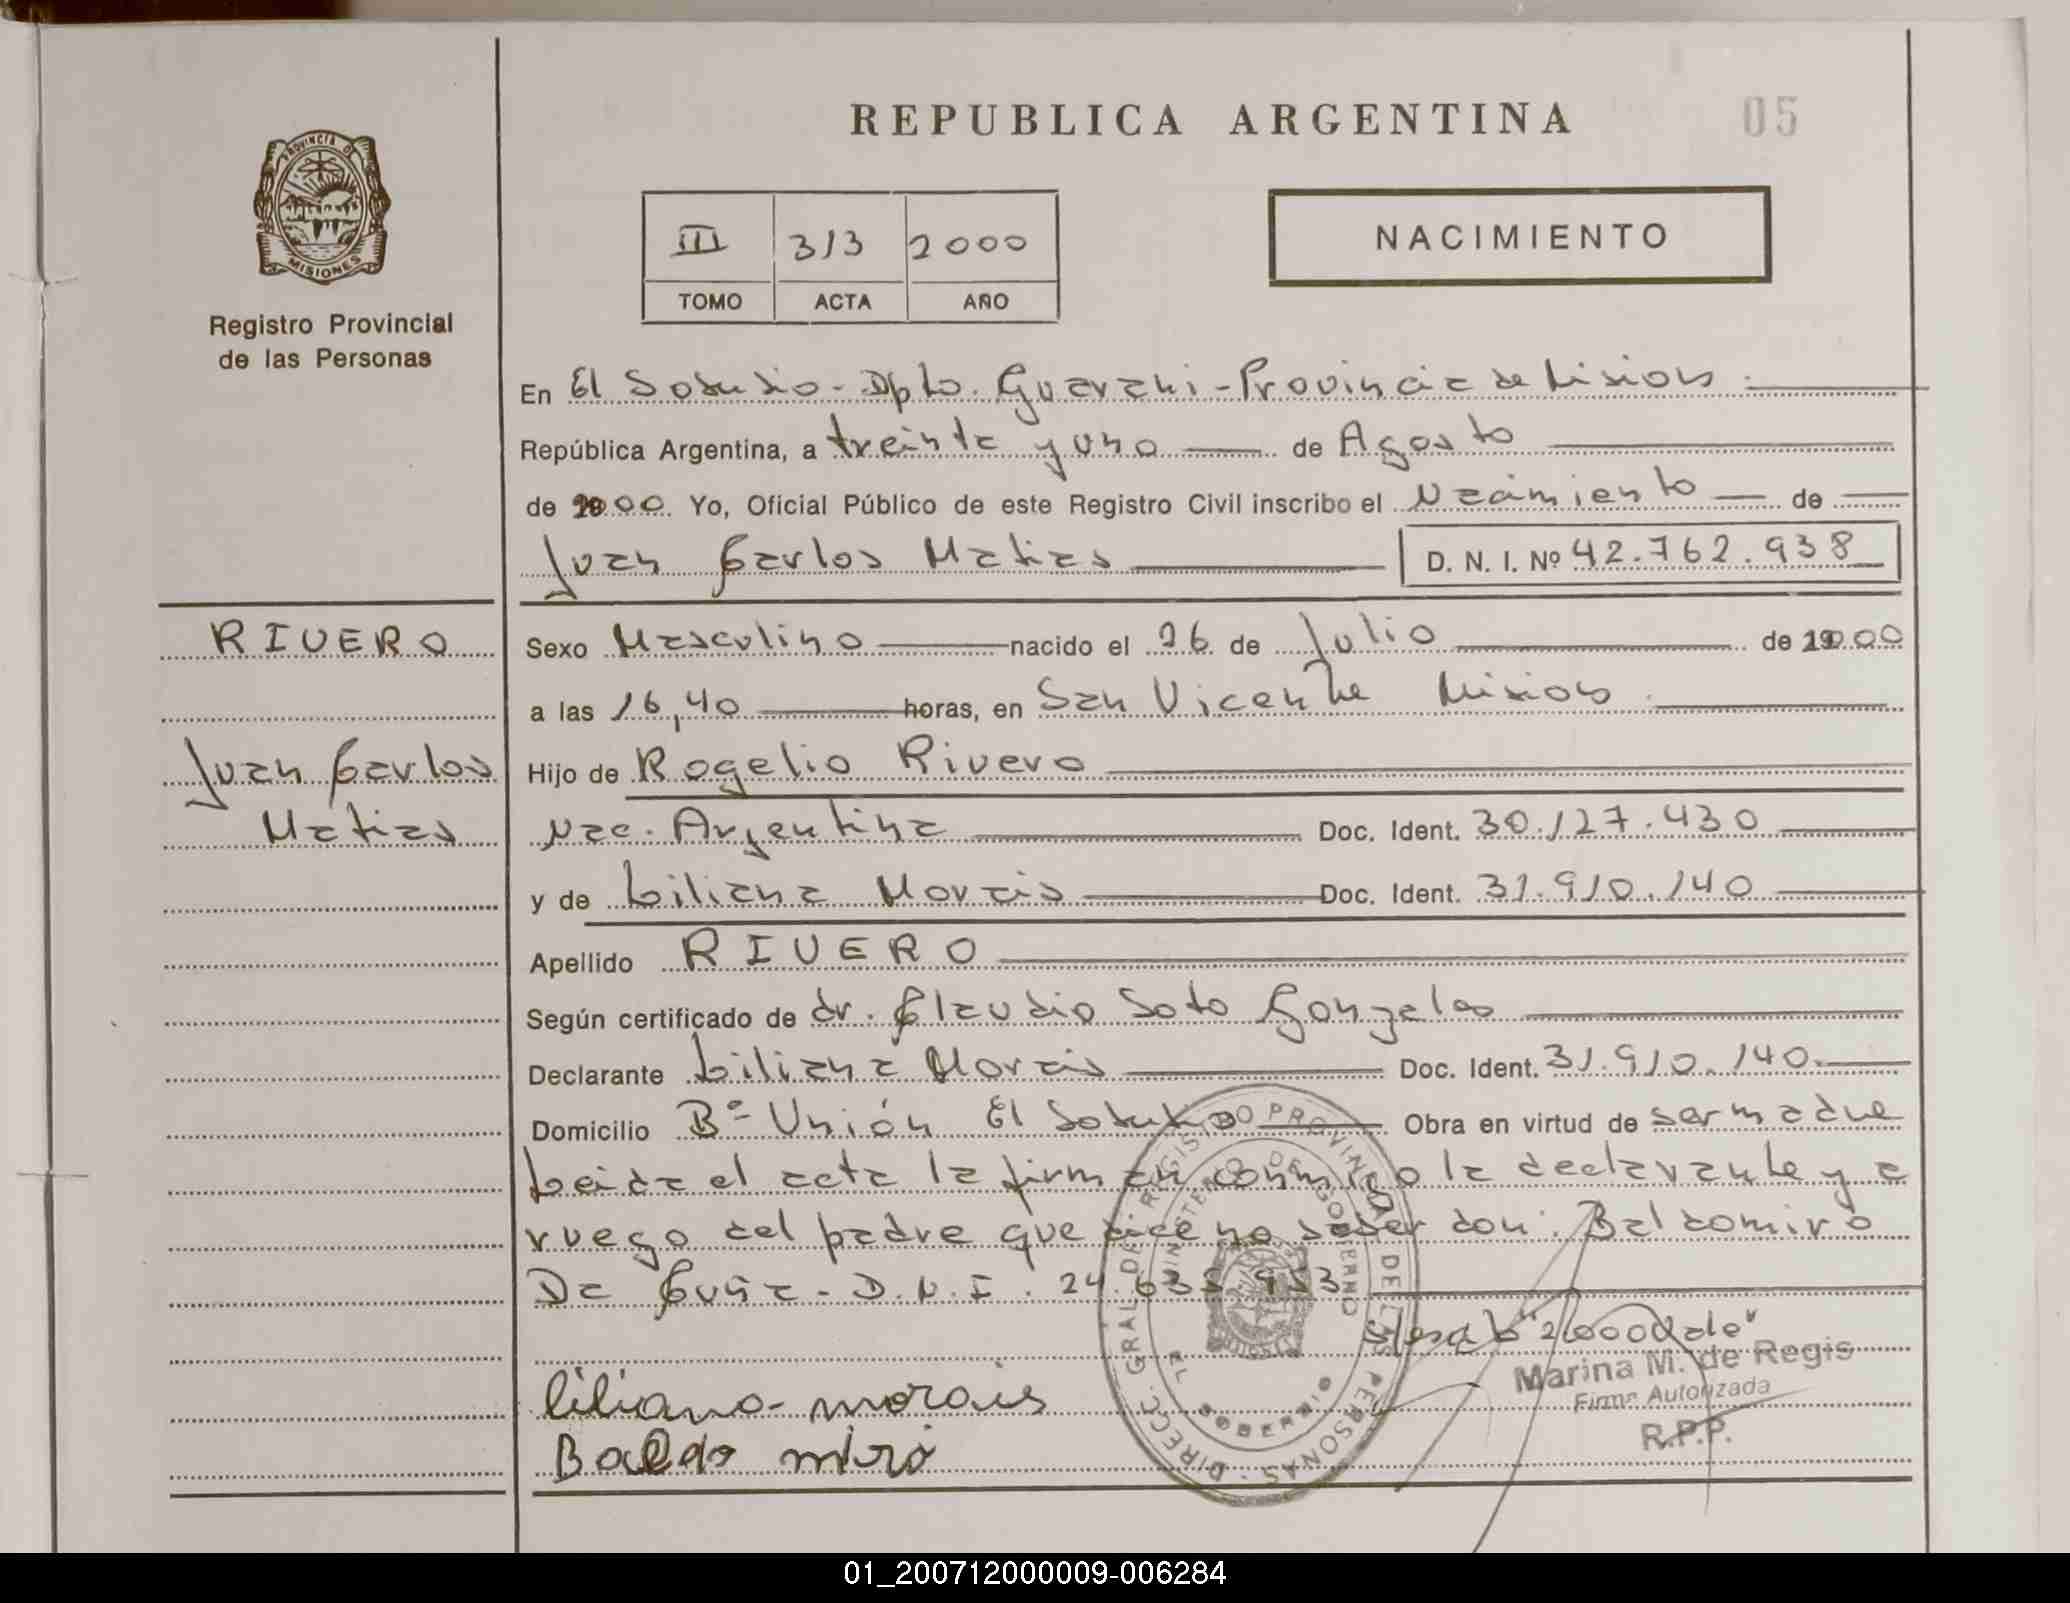 REPUBLICA ARGENTINA
05
PROVINCIA DE MISIONES
Registro Provincial
de las Personas
III 313 2000
TOMO ACTA AÑO
NACIMIENTO
En El Soberbio - Dpto. Guarani - Provincia de Misiones.
República Argentina, a treinta y uno de Agosto
de 2000 Yo, Oficial Público de este Registro Civil inscribo el Nacimiento de
Juan Carlos Matias D. N. I. Nº 42.762.938
RIVERO
Juan Carlos
Matias
Sexo Masculino nacido el 26 de Julio de 2000
a las 16,40 horas, en San Vicente Misiones.
Hijo de Rogelio Rivero
Nac. Argentina Doc. Ident. 30.127.430
y de Liliana Morais Doc. Ident. 31.910.140
Apellido RIVERO
Según certificado de dr. Claudio Soto Gonzales
Declarante Liliana Morais Doc. Ident. 31.910.140.
Domicilio Bº Unión El Soberbio Obra en virtud de ser madre
Leida el acta la firman conmigo la declarante y a
ruego del padre que dice no saber don: Baldomiro
Da Cuña - D.N.I. 24.633.953
"2000
liliana morais
Baldo miro
DIRECC. GRAL DE REGISTRO PROVINCIAL DE LAS PERSONAS
MINISTERIO DE GOBIERNO
EL SOBERBIO
Marina M. de Regis
Firma Autorizada
R.P.P.
01_200712000009-006284